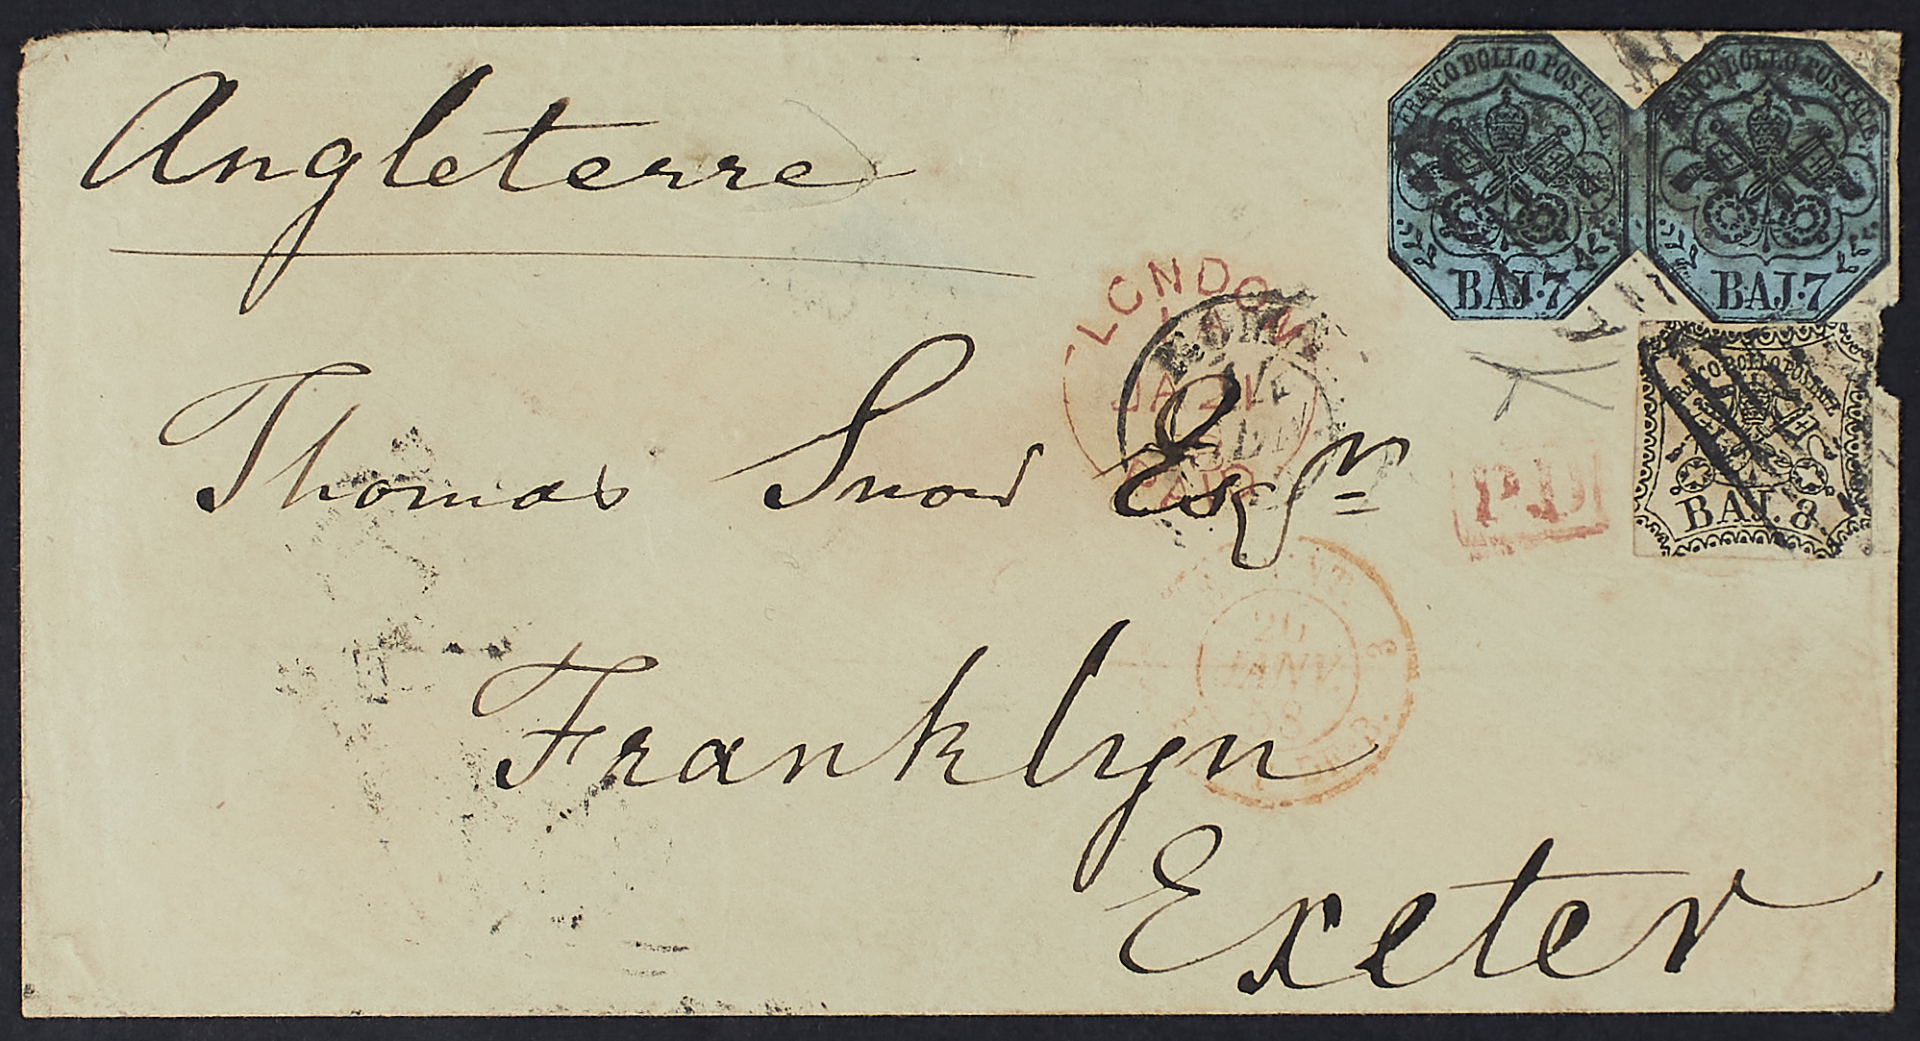 Angleterre
FRANCO BOLLO POSTALE
BAJ. 7
FRANCO BOLLO POSTALE
BAJ. 7
FRANCO BOLLO POSTALE
BAJ. 8
LONDON
JA 21
PAID
ROMA
P.D
Thomas Snow Esqr
20
JANV.
58
3
Franklyn
Exeter